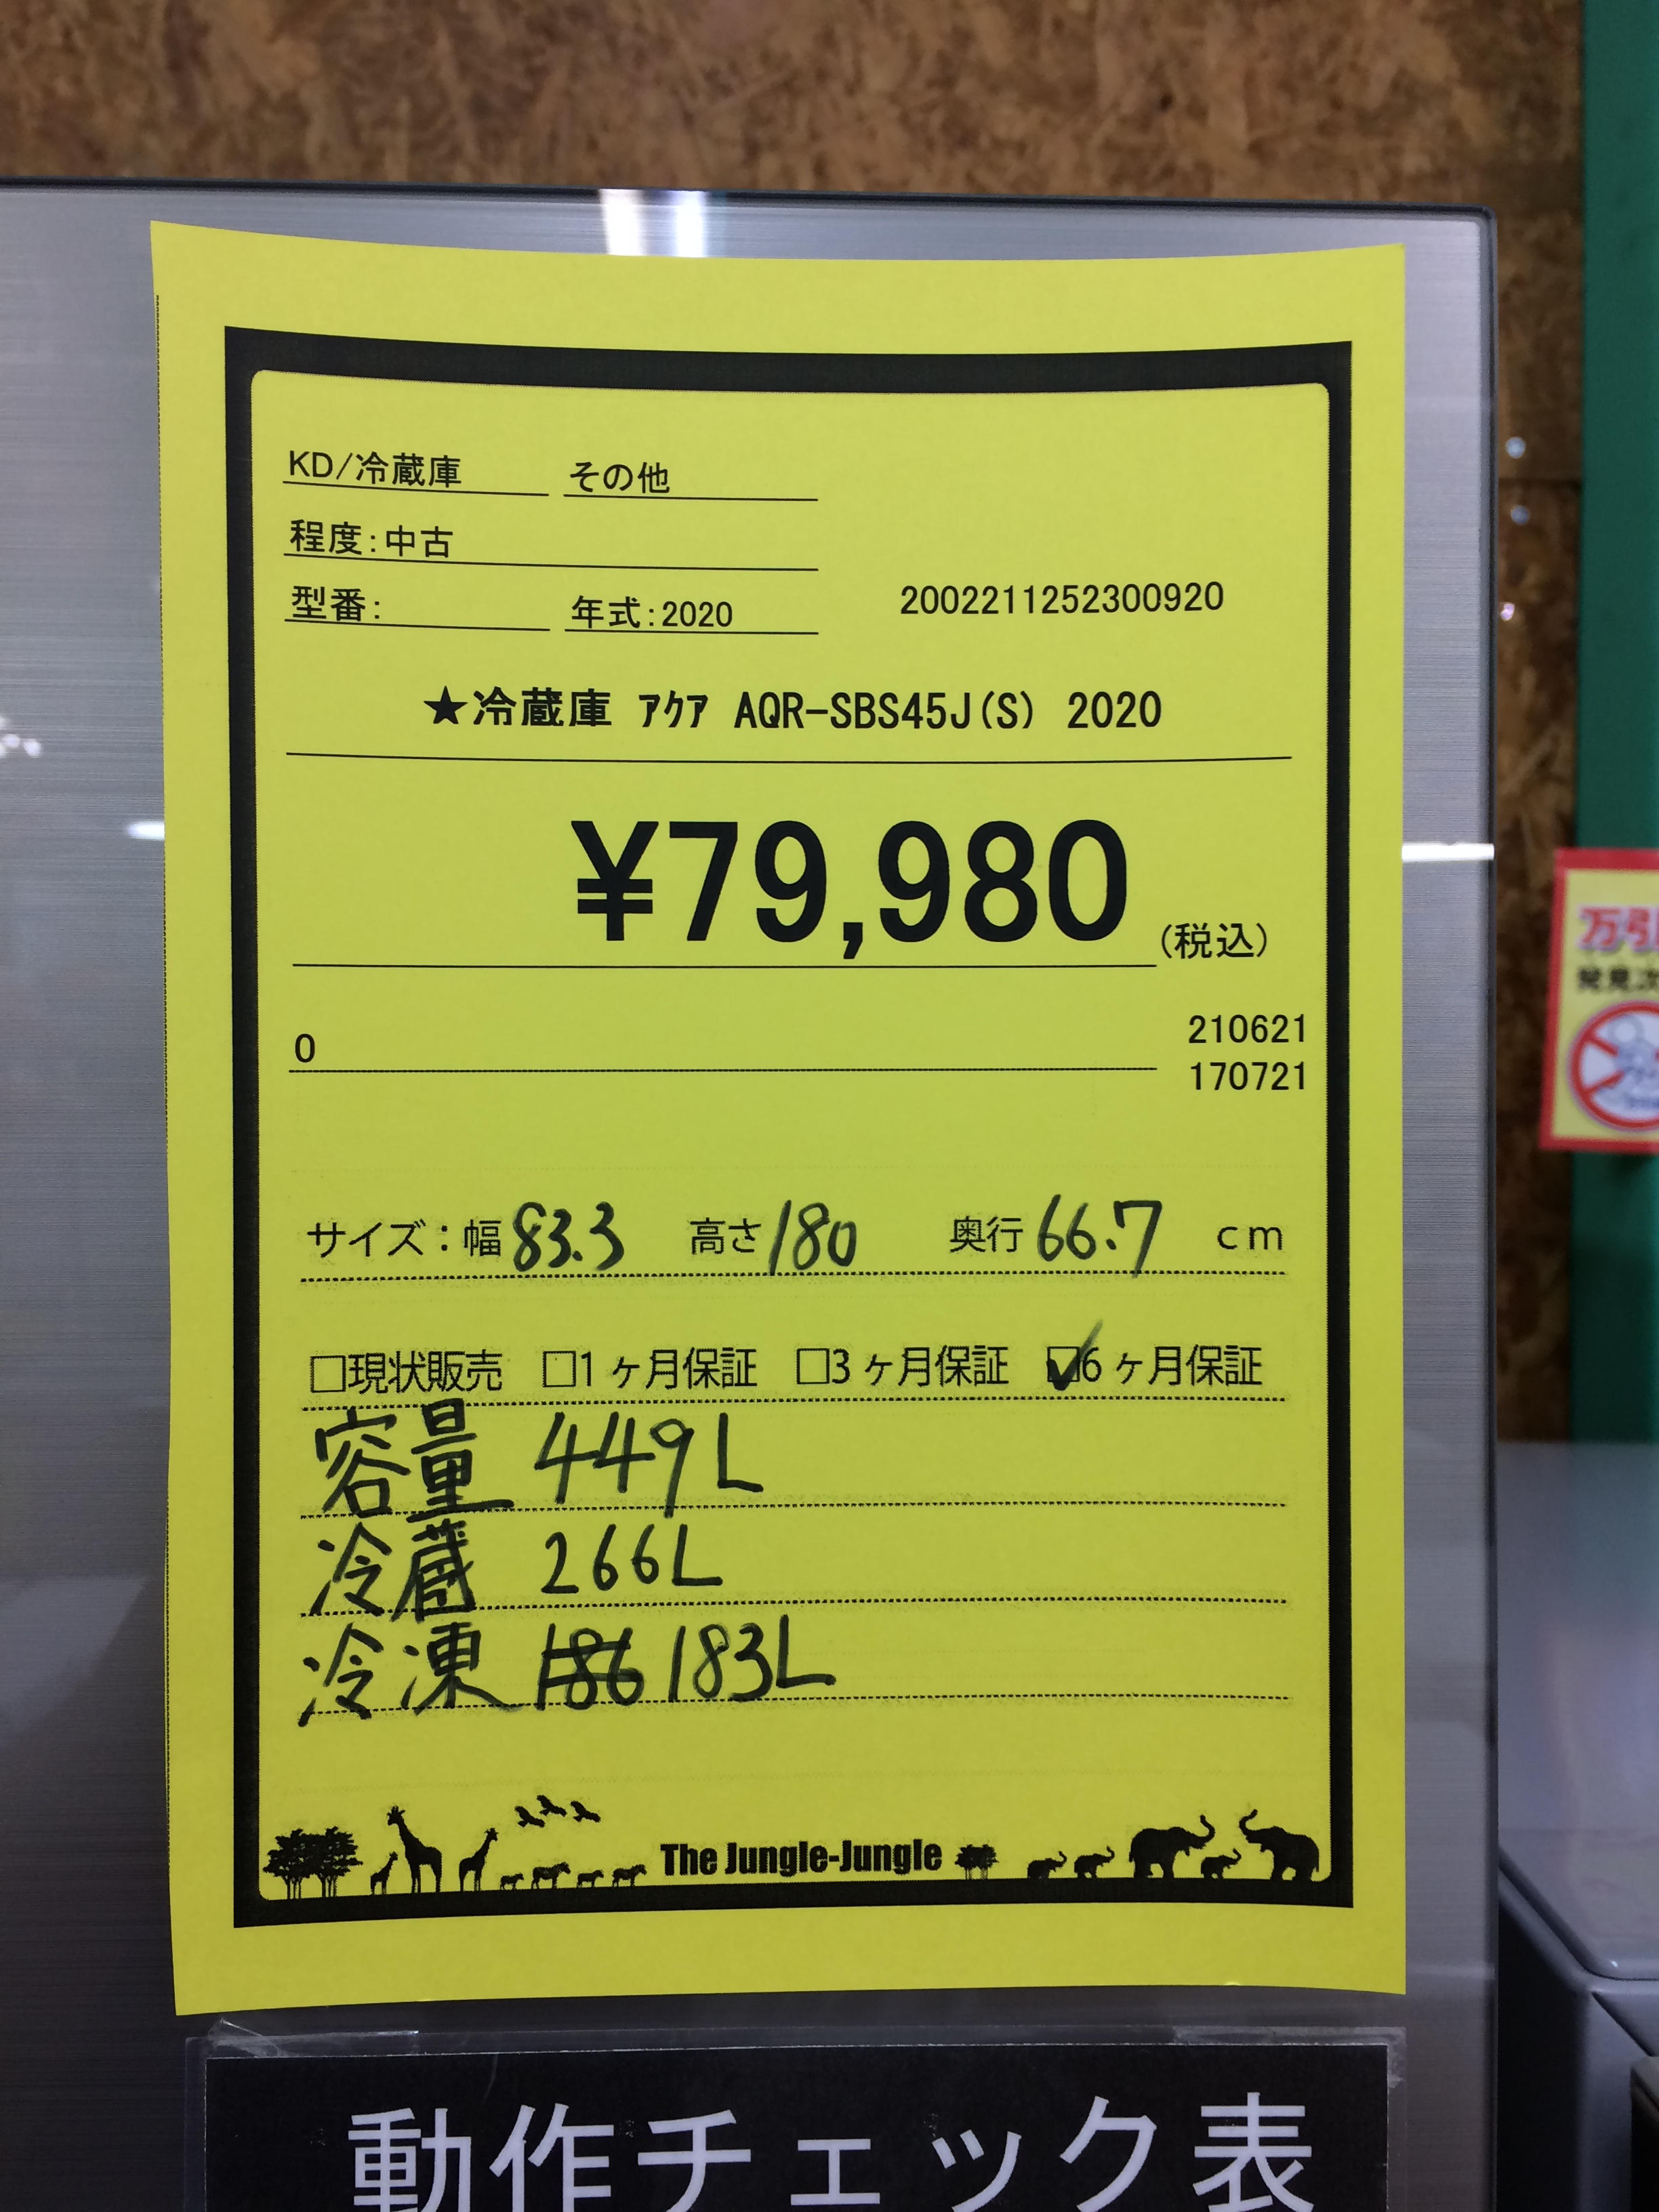 KD/冷蔵庫 その他
程度:中古
型番: 年式:2020 2002211252300920
★冷蔵庫 ｱｸｱ AQR-SBS45J(S) 2020
¥79,980 (税込)
0 210621
170721
サイズ:幅 83.3 高さ 180 奥行 66.7 cm
□現状販売 □1ヶ月保証 □3ヶ月保証 ☑6ヶ月保証
容量 449L
冷蔵 266L
冷凍 186 183L
The Jungle-Jungle
動作チェック表
万引
発見次